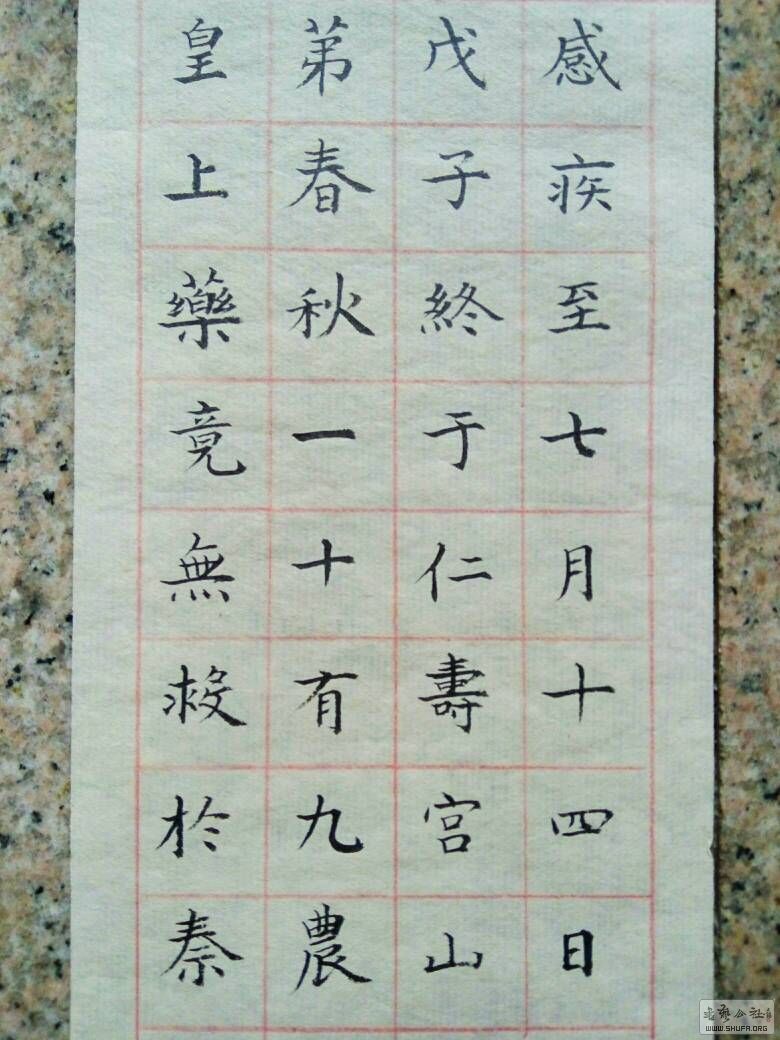 感疾至七月十四日
戊子終于仁壽宮山
苐春秋一十有九農
皇上藥竟無救於秦
书艺公社
WWW.SHUFA.ORG